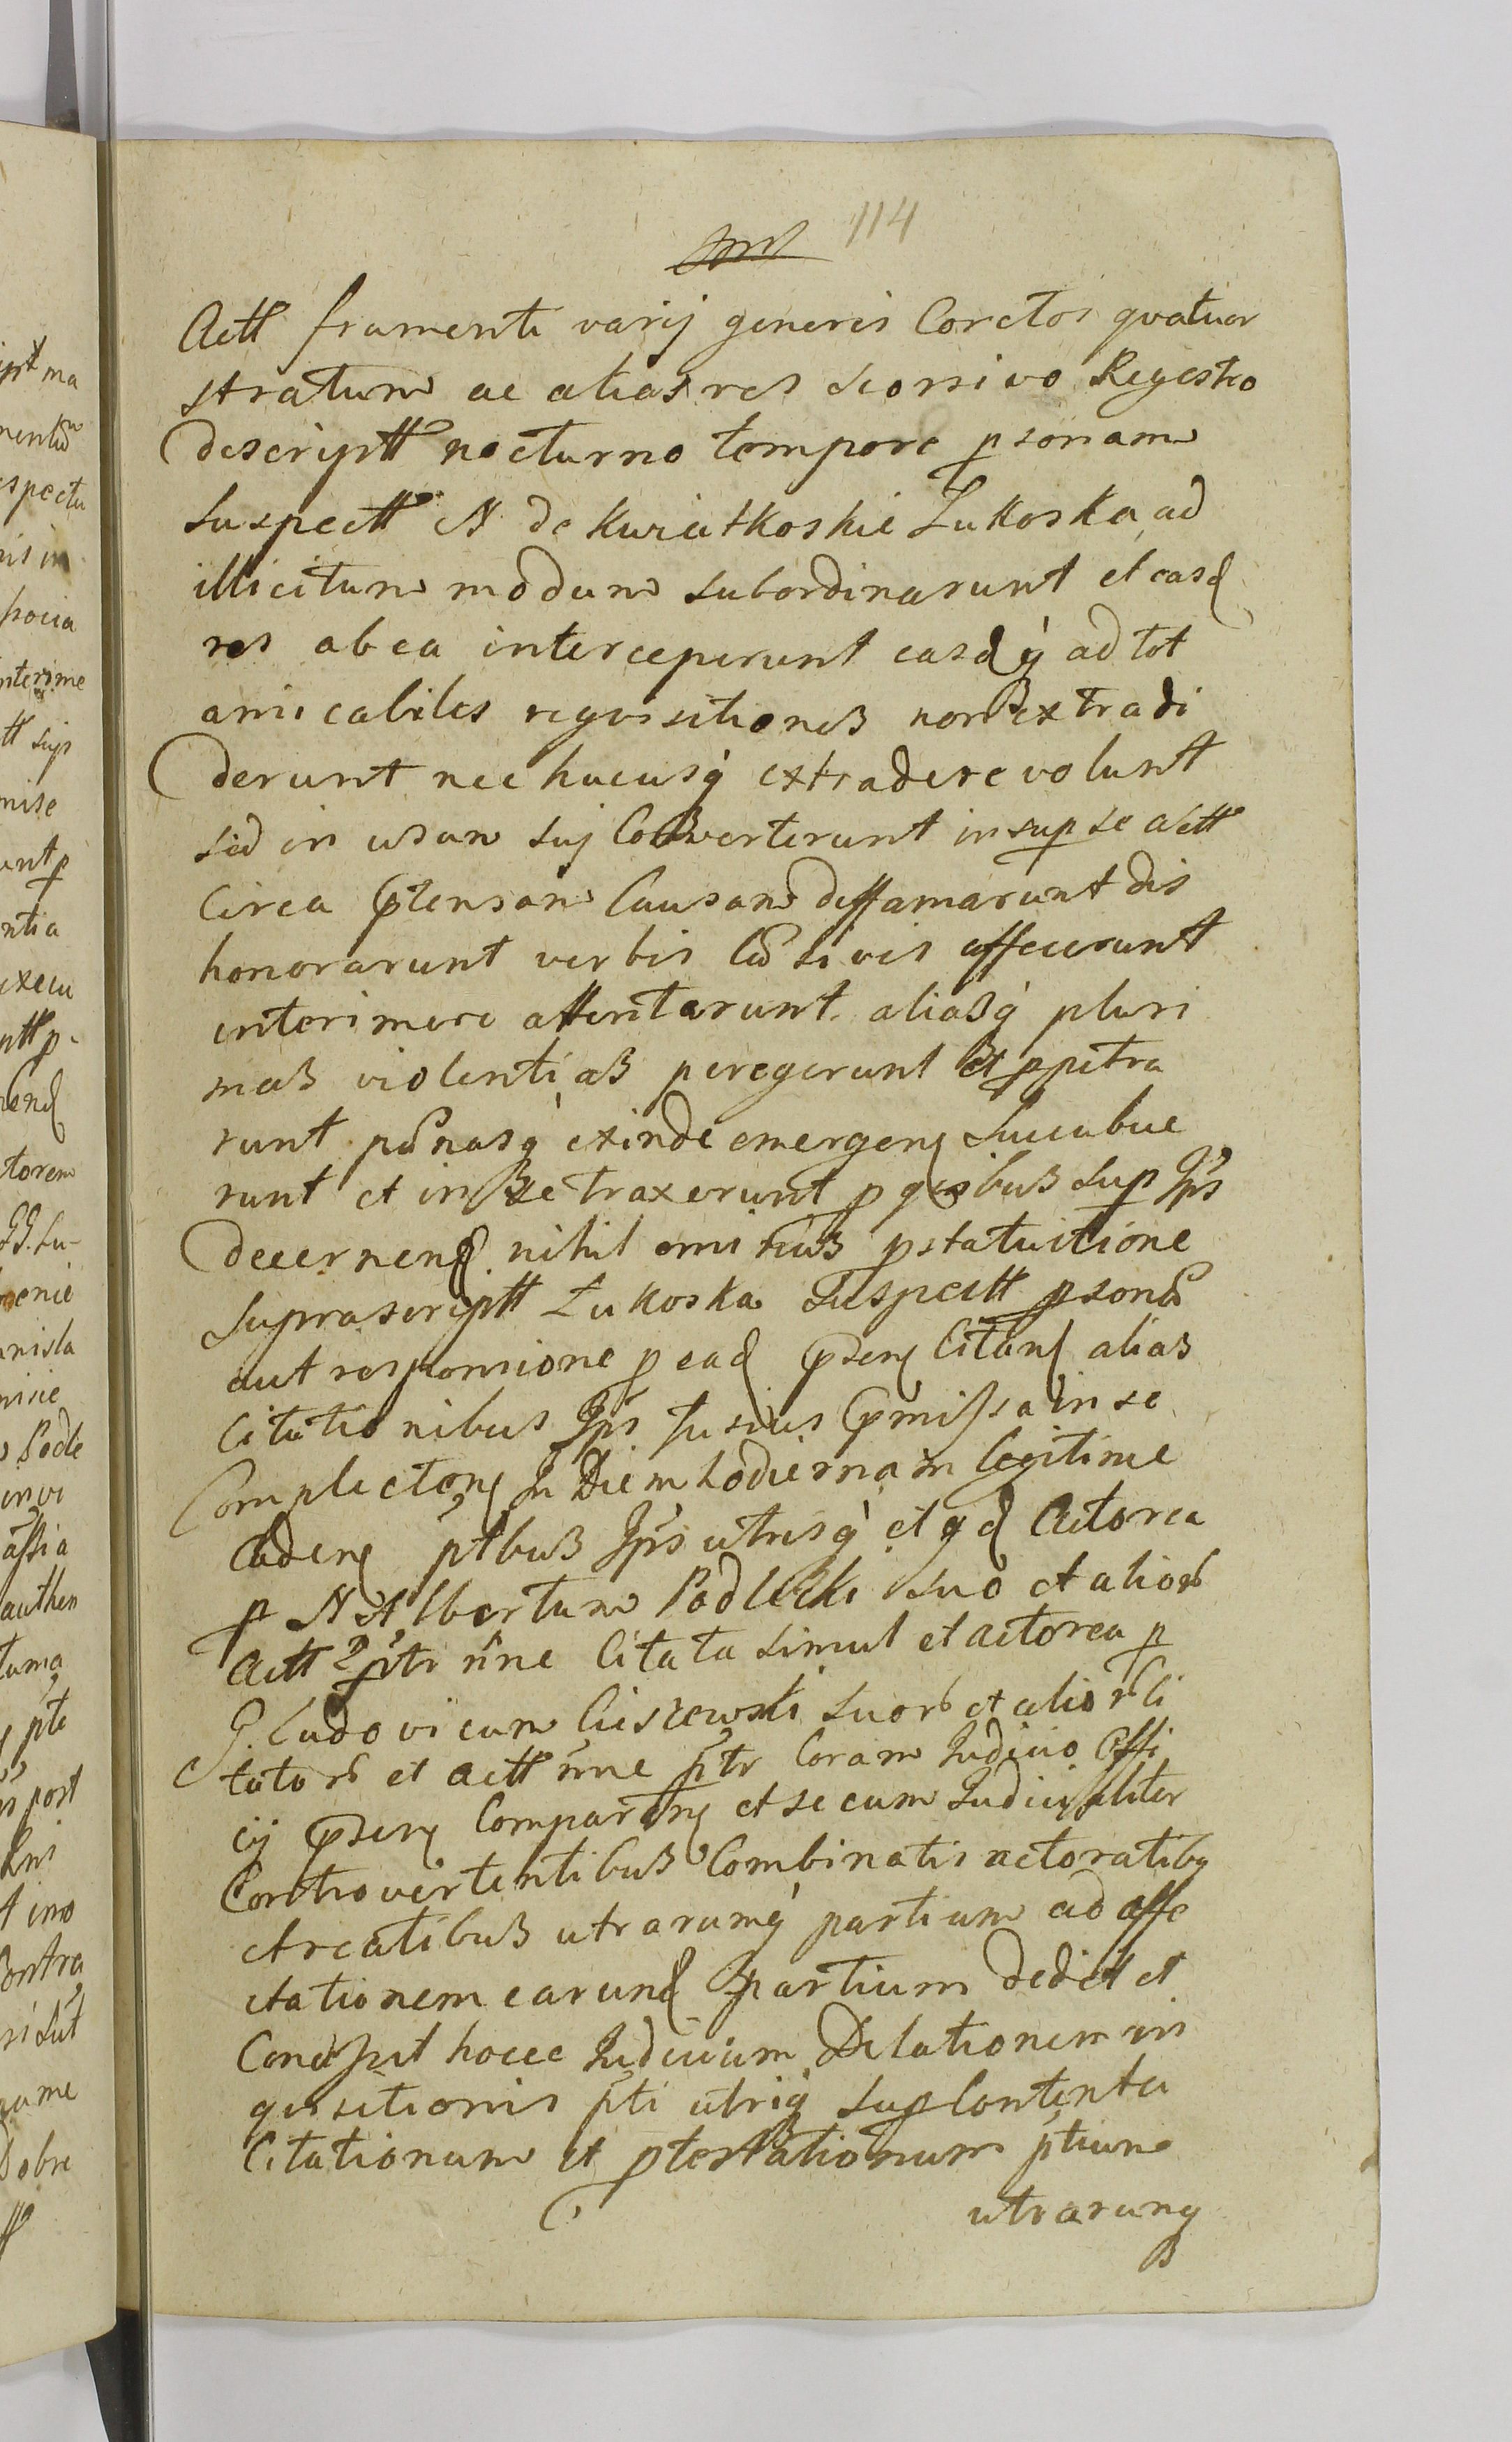 114
Actt frumenti varij generis Coretos qvatuor
stratum ac alias res seorsivo Regestro
descriptt nocturno tempore psonam
suspectt N. de Kwiatkoskie Łukoska ad
illicitum modum subordinarunt et easd
res ab ea interceperunt easdq̀ ad tot
amicabiles reqvisitiones non extradi
derunt nec hucusq̀ extradere volunt
sed in usum suj Converterunt insup se Actt
Circa Ptensam Causam deffamarunt dis
honorarunt verbis Läsivis affecerunt
interimere attentarunt aliasq̀ pluri
mas violentias peregerunt et ppetra
runt pänasq̀ exinde emergen succubue
runt et in se traxerunt p qvibus sup Jps
decernend nihil ominus pstatuitione
suprascriptt Łukoska suspectt psonä
aut responsione p ead Psen Citand alias
Citationibus Jps fusius Pmissa in se
Complecten In Diem hodiernam legitime
Caden ptbus Jps utrisq̀ et qd Actorea
p N Albertum Podlecki suo et alior
Actt ptr nne Citata simul et actorea p
G. Ludovicum Ciiszewski suor et alior Ci
tator et actt nne ptr Coram Judicio Offi
cij Psen Comparen et se cum Judicialiter
Controvertentibus Combinatis actoratibq
et reatibus utrarumq̀ partium ad affe
ctationem earund partium dedit et
Concessit hocce Judicium Dilationem in
qvisitionis pti utriq̀ sup Contenta
Citationum et ptestationum ptium
utrarumq